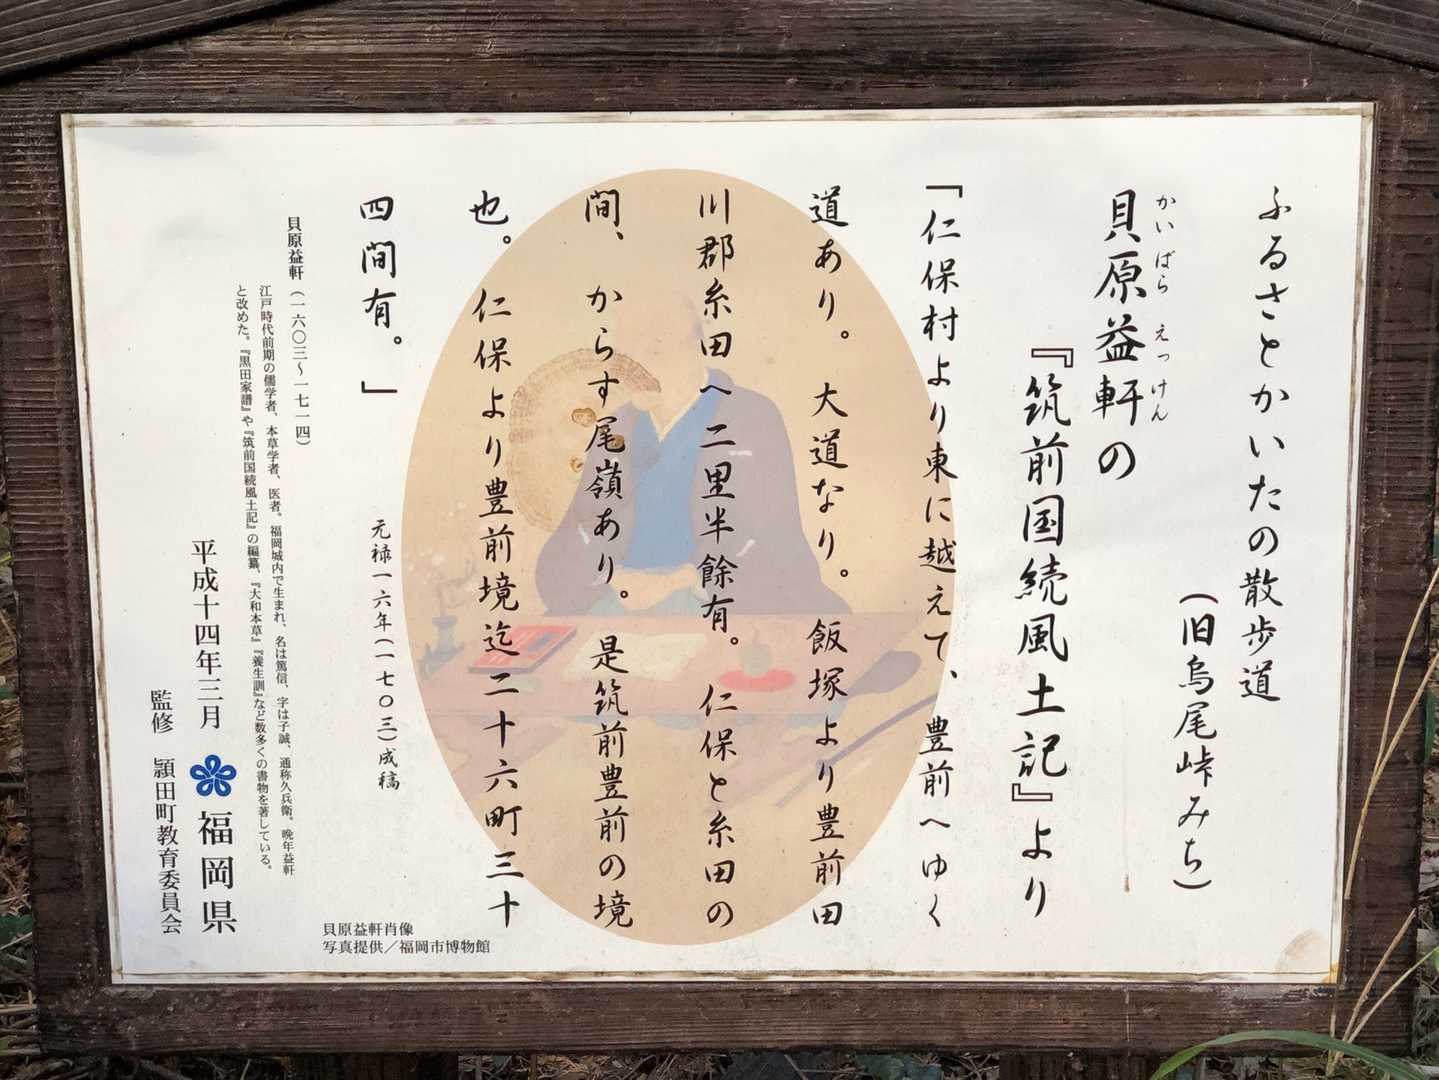 ふるさとかいたの散歩道
(旧烏尾峠みち)
かいばら えっけん
貝原益軒の
『筑前国続風土記』より
「仁保村より東に越えて、豊前へゆく
道あり。大道なり。飯塚より豊前田
川郡糸田へ二里半餘有。仁保と糸田の
間、からす尾嶺あり。是筑前豊前の境
也。仁保より豊前境迄二十六町三十
四間有。」
元禄一六年(一七〇三)成稿
貝原益軒(一六〇三〜一七一四)
江戸時代前期の儒学者、本草学者、医者。福岡城内で生まれ、名は篤信、字は子誠、通称久兵衛。晩年益軒
と改めた。『黒田家譜』や『筑前国続風土記』の編纂、『大和本草』『養生訓』など数多くの書物を著している。
平成十四年三月 福岡県
監修 頴田町教育委員会
貝原益軒肖像
写真提供/福岡市博物館